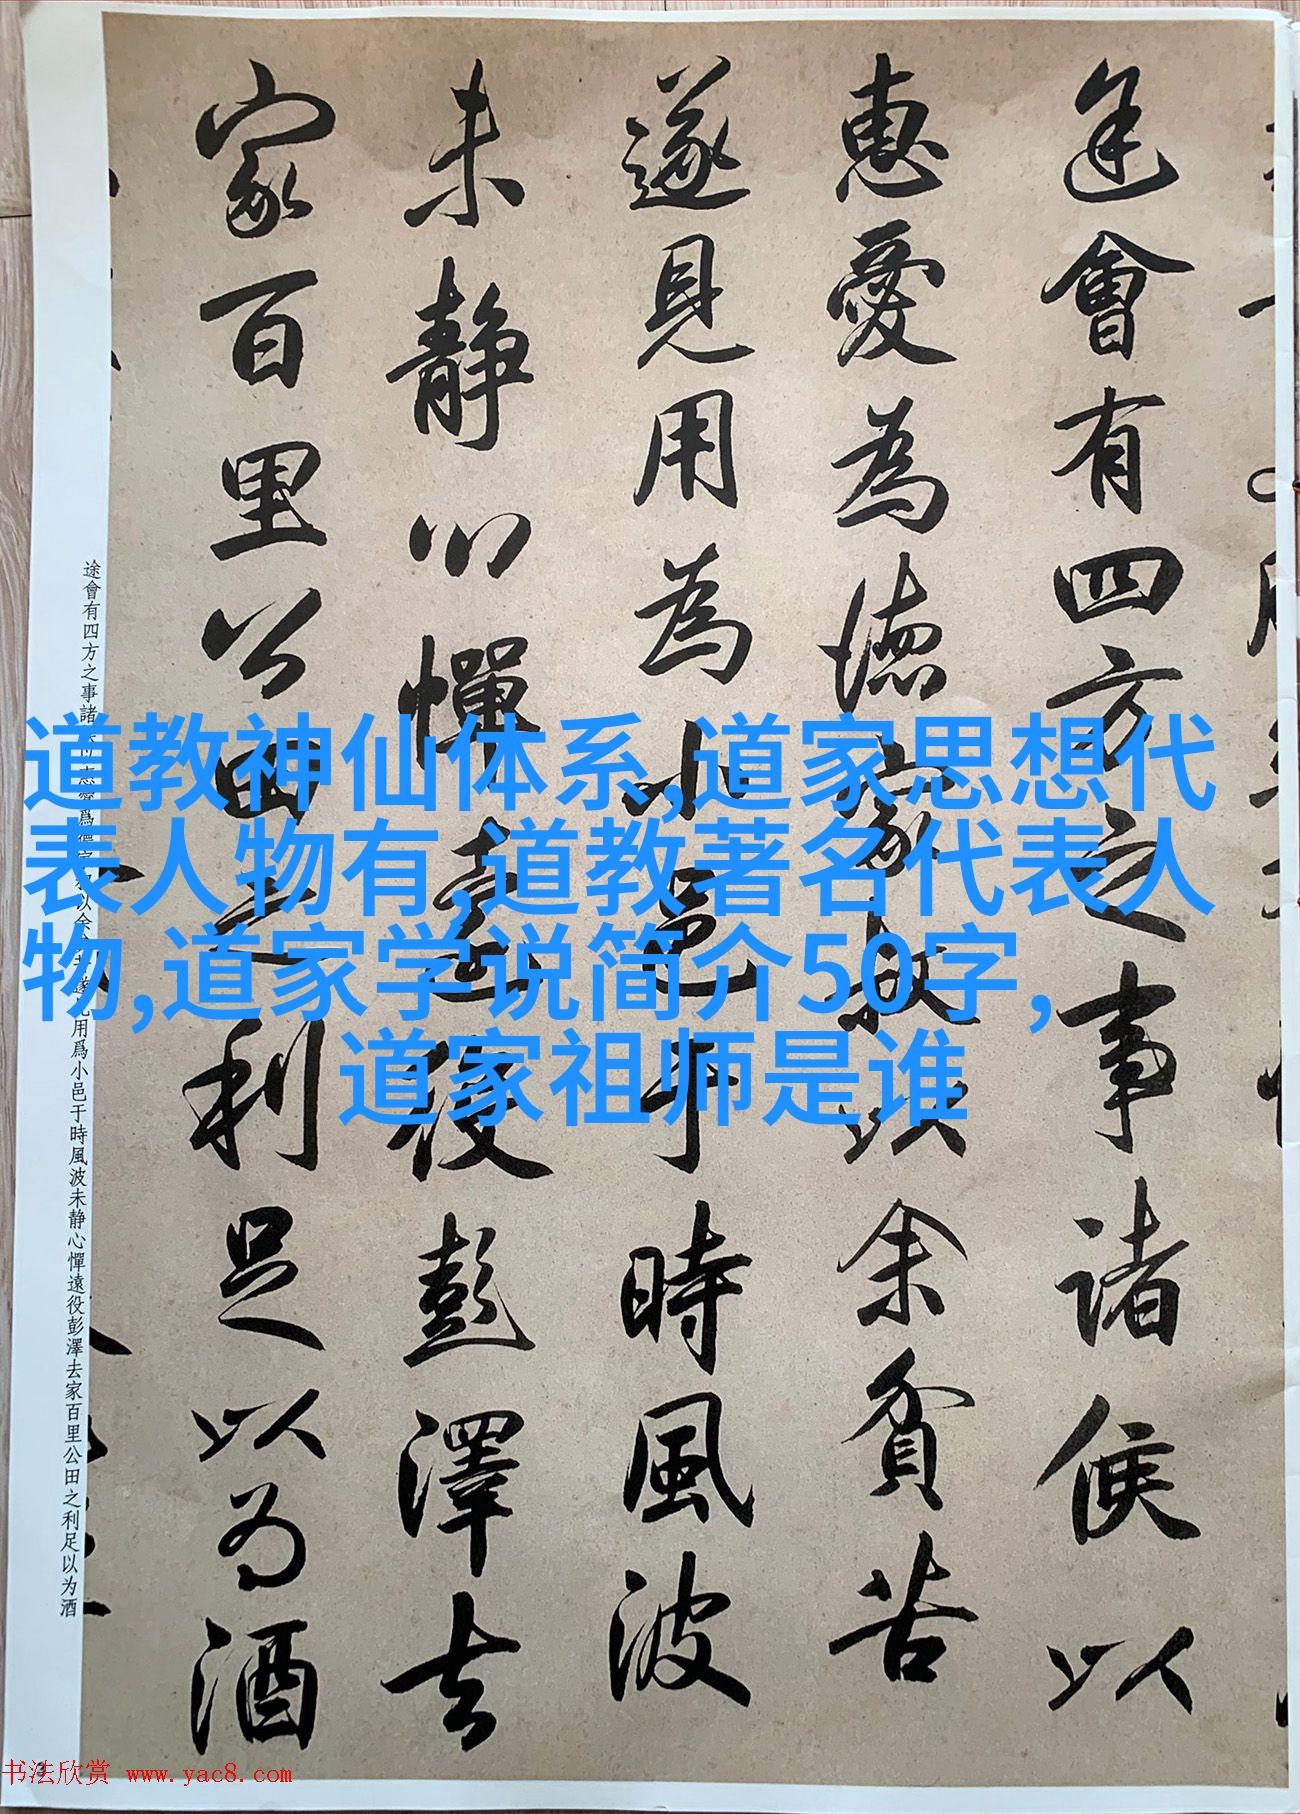 途會有四方之事諸侯以
惠愛為德家叔以余貧苦
遂見用為小邑于時風波
未靜心憚遠役彭澤去
家百里公田之利足以為酒
途會有四方之事諸侯以惠愛爲德家叔以余貧苦遂見用爲小邑于時風波未静心憚遠役彭澤去家百里公田之利足以为酒
道教神仙体系,道家思想代
表人物有,道教著名代表人
物,道家学说简介50字,
道家祖师是谁
3
书法欣赏 www.yac8.com